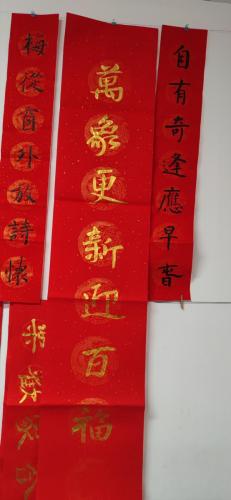 自有奇逢應早春
萬象更新迎百福
梅從窗外放詩懷